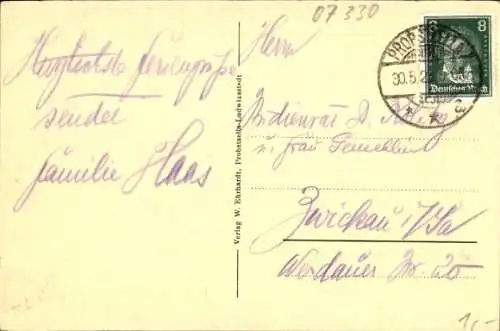 07 330
Herrn
Herzlichste Feriengrüße
sendet
Familie Haas
Verlag W. Ehrhardt, Probstzella-Ludwigsstadt
PROBSTZELLA
30.5.2
8
Deutsches Reich
Studienrat D.
u. Frau Gemahlin
Zwickau i/Sa
Werdauer Str 20
1,-